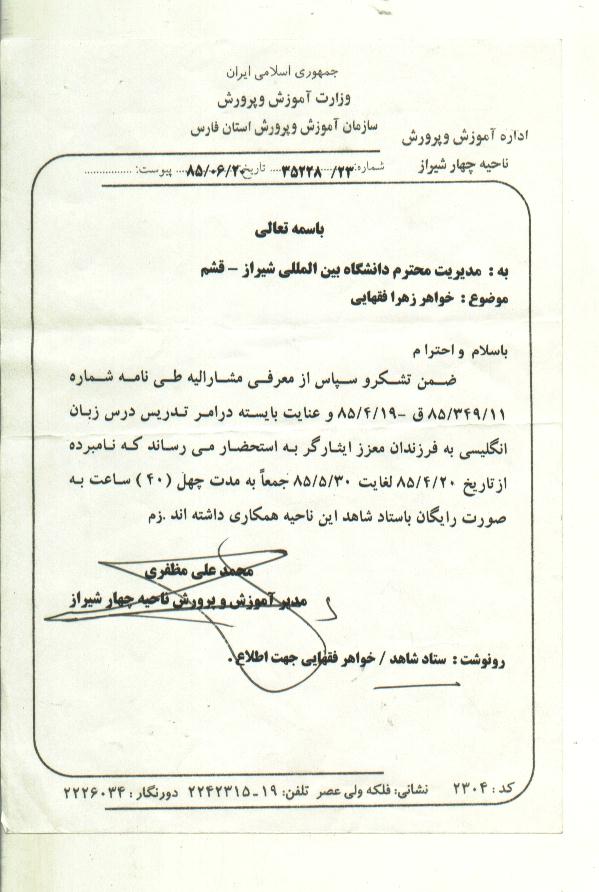 جمهوری اسلامی ایران
وزارت آموزش وپرورش
سازمان آموزش وپرورش استان فارس
اداره آموزش وپرورش
ناحیه چهار شیراز
شماره: ۳۵۲۲۸ /۲۳ تاریخ ۸۵/۰۶/۲۰ پیوست: ................
باسمه تعالی
به : مدیریت محترم دانشگاه بین المللی شیراز – قشم
موضوع : خواهر زهرا فقهایی
باسلام و احترا م
ضمن تشکرو سپاس از معرفی مشارالیه طی نامه شماره
۸۵/۳۴۹/۱۱ ق –۸۵/۴/۱۹ و عنایت بایسته درامر تدریس درس زبان
انگلیسی به فرزندان معزز ایثارگر به استحضار می رساند که نامبرده
ازتاریخ ۸۵/۴/۲۰ لغایت ۸۵/۵/۳۰ جمعاً به مدت چهل (۴۰) ساعت به
صورت رایگان باستاد شاهد این ناحیه همکاری داشته اند .زم
محمد علی مظفری
مدیر آموزش و پرورش ناحیه چهار شیراز
رونوشت : ستاد شاهد / خواهر فقهایی جهت اطلاع .
کد : ۲۳۰۴ نشانی: فلکه ولی عصر تلفن: ۱۹-۲۲۴۲۳۱۵ دورنگار : ۲۲۲۶۰۳۴